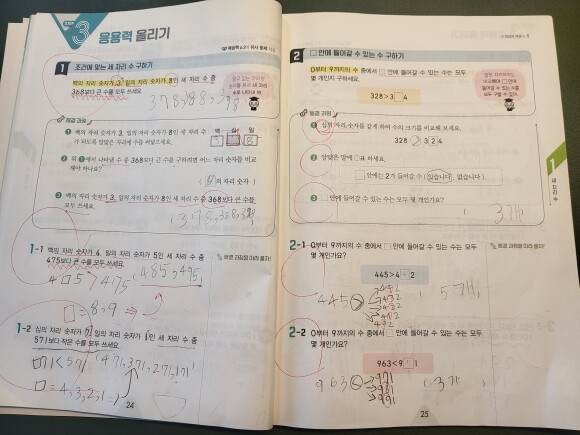 3
응용력 올리기
1 조건에 맞는 세 자리 수 구하기
백의 자리 숫자가 3, 일의 자리 숫자가 8인 세 자리 수 중
368보다 큰 수를 모두 쓰세요.
378, 388, 398
해결 과정
1 백의 자리 숫자가 3, 일의 자리 숫자가 8인 세 자리 수가 되도록 알맞은 자리에 수를 써넣으세요.
백 십 일
3 8
2 위 1에서 나타낸 수 중 368보다 큰 수를 구하려면 어느 자리 숫자를 비교해야 하나요?
(십의 자리 숫자)
3 백의 자리 숫자가 3, 일의 자리 숫자가 8인 세 자리 수 중 368보다 큰 수를 모두 쓰세요.
1-1 백의 자리 숫자가 4, 일의 자리 숫자가 5인 세 자리 수 중
475보다 큰 수를 모두 쓰세요.
(485, 495)
4□5>475
□=8,9
1-2 십의 자리 숫자가 7, 일의 자리 숫자가 1인 세 자리 수 중
571보다 작은 수를 모두 쓰세요.
□71<571
(471, 371, 271, 171)
□=4,3,2,1
24
2 □ 안에 들어갈 수 있는 수 구하기
0부터 9까지의 수 중에서 □ 안에 들어갈 수 있는 수는 모두
몇 개인지 구하세요.
328>3□4
해결 과정
1 십의 자리 숫자를 같게 하여 수의 크기를 비교해 보세요.
328 > 324
2 알맞은 말에 ○표 하세요.
□ 안에는 2가 들어갈 수 (있습니다, 없습니다).
3 □ 안에 들어갈 수 있는 수는 모두 몇 개인가요?
(3개)
1 세 자리 수
2-1 0부터 9까지의 수 중에서 □ 안에 들어갈 수 있는 수는 모두
몇 개인가요?
해결 과정을 따라 풀자!
445>4□2
445>
(5개)
2-2 0부터 9까지의 수 중에서 □ 안에 들어갈 수 있는 수는 모두
몇 개인가요?
963<9□1
963<
971
981
991
(3개)
25